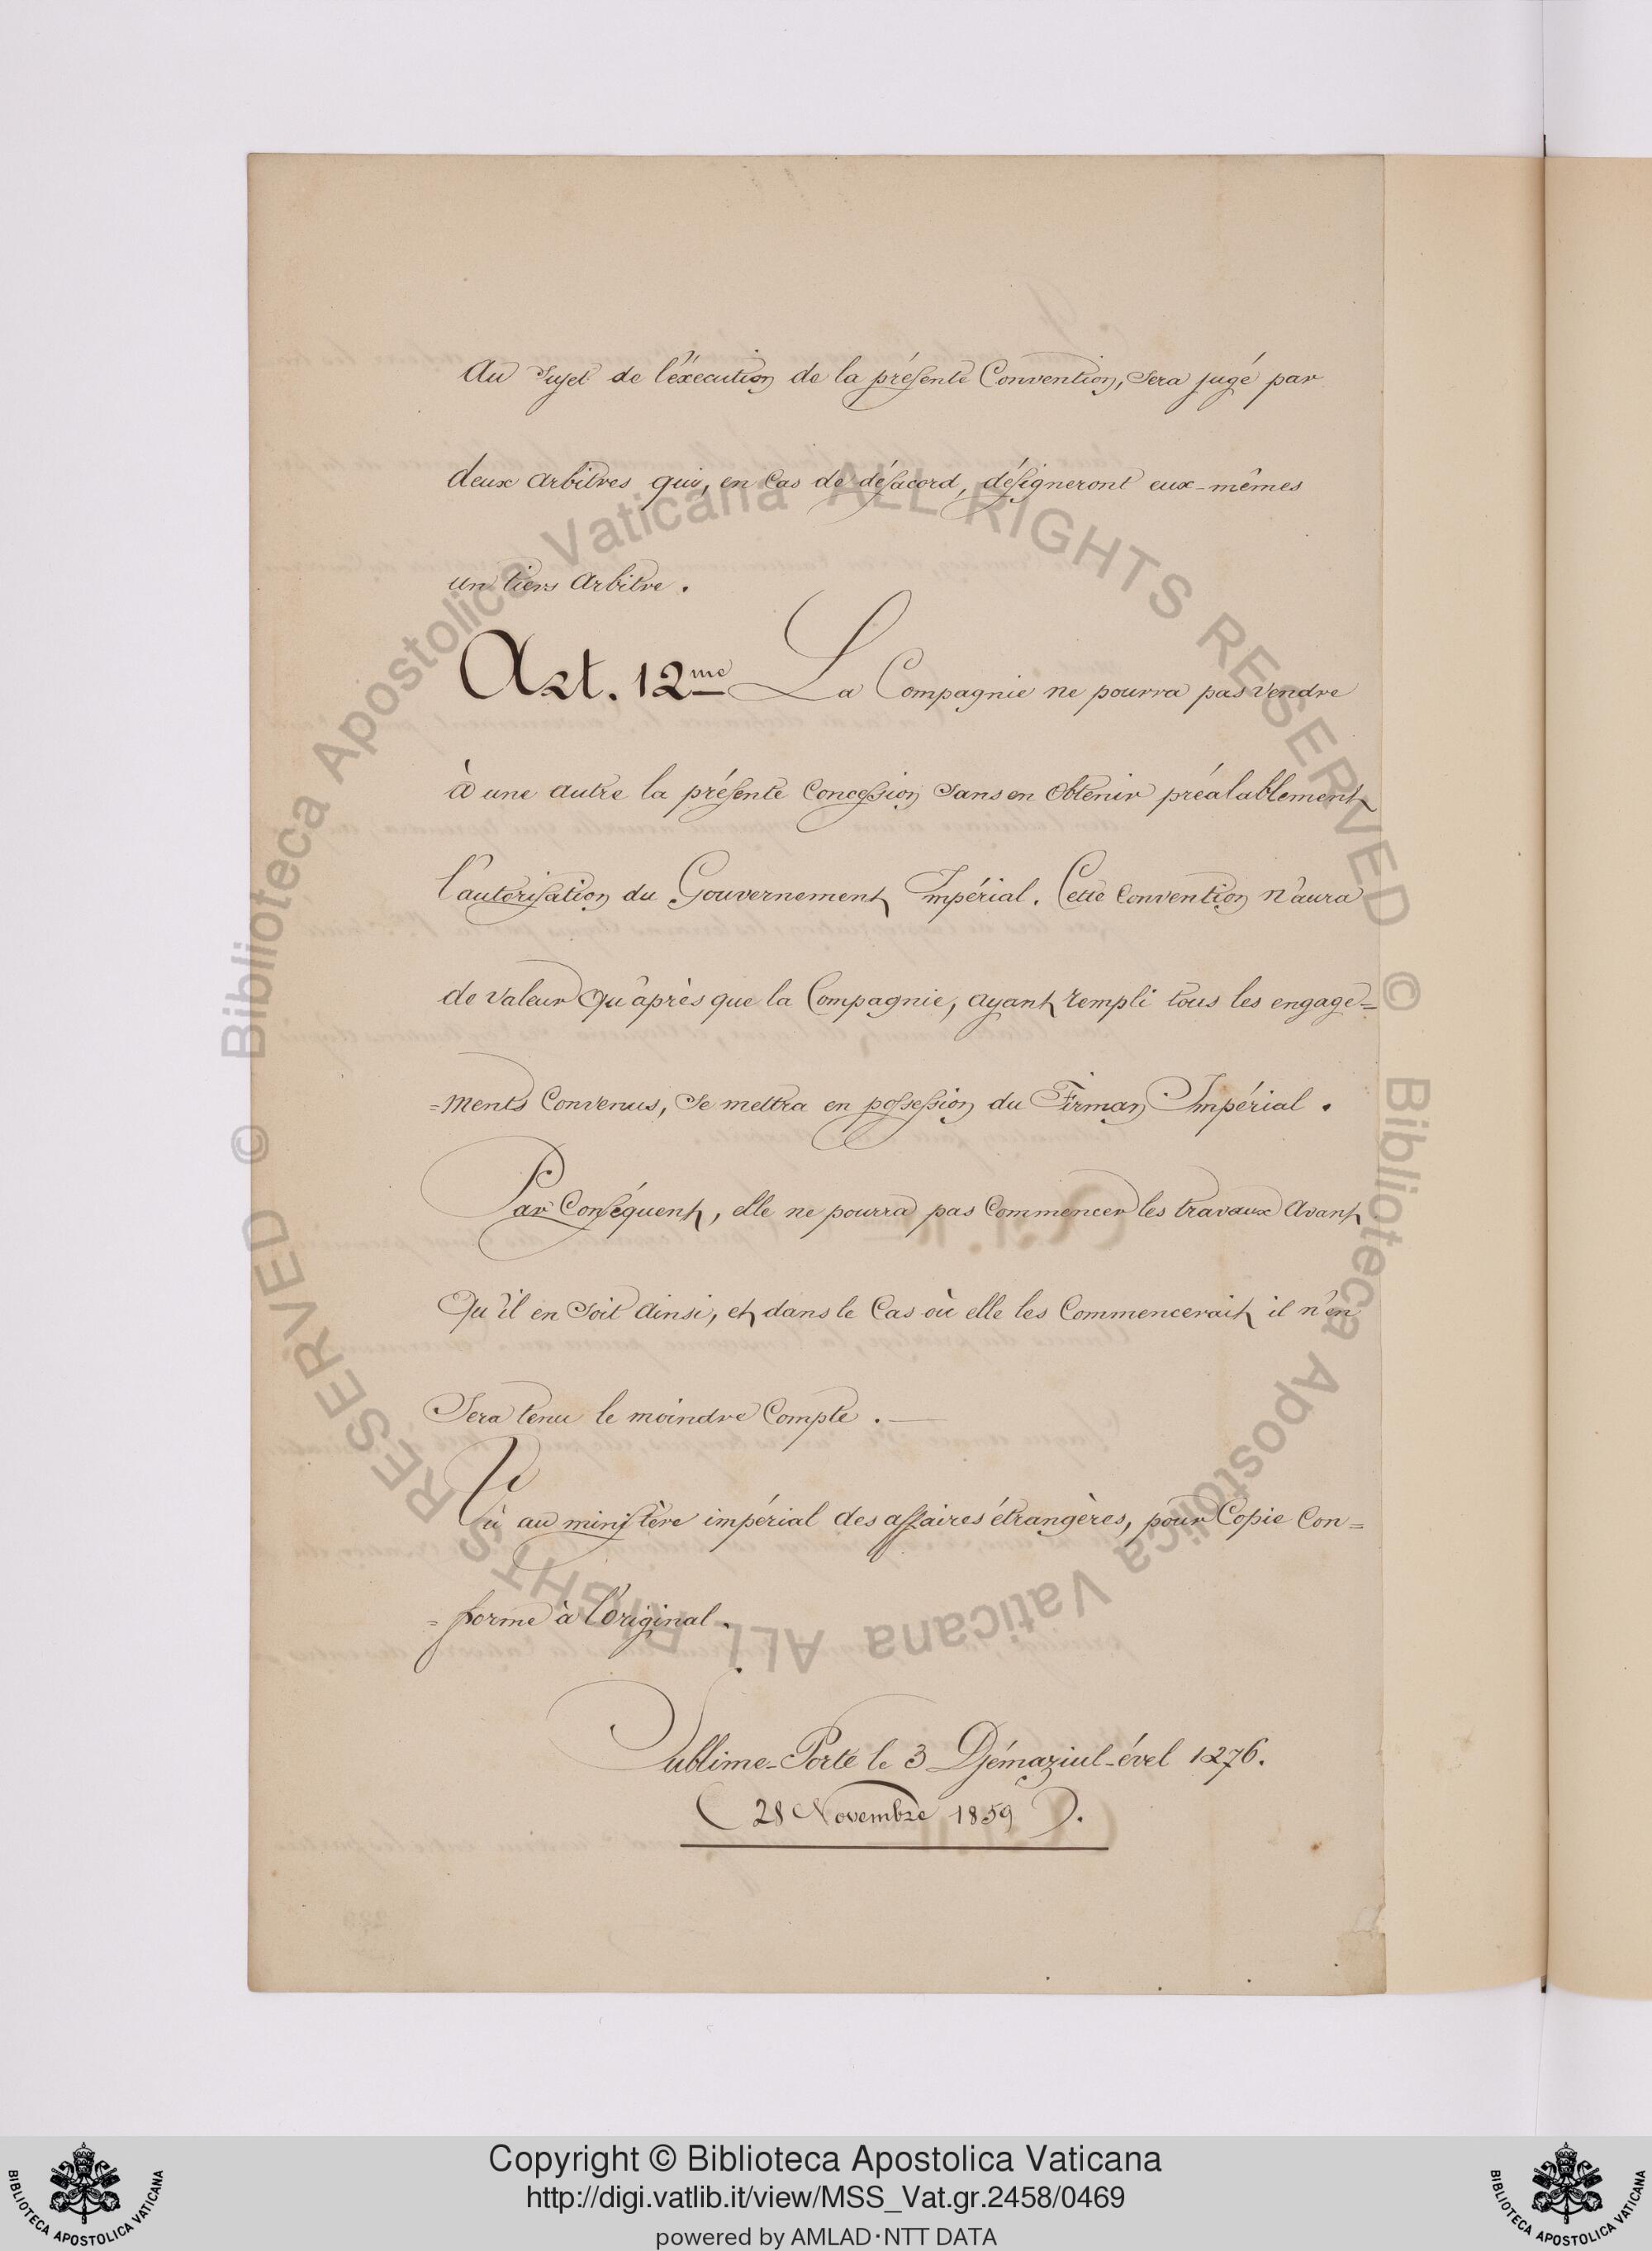 au Sujet de l'éxecution de la présente Convention, Sera jugé par
deux arbitres qui, en Cas de désacord, désigneront eux-mêmes
un tiers arbitre.
Art. 12me La Compagnie ne pourra pas vendre
à une autre la présente Concession Sans en Obtenir préalablement
l'autorisation du Gouvernement Impérial. Cette Convention n'aura
de valeur Qu'après que la Compagnie, ayant rempli tous les engage=
=ments Convenus, Se mettra en possession du Firman Impérial.
Par Conséquent, elle ne pourra pas Commencer les travaux avant
Qu'il en Soit ainsi, et dans le Cas où elle les Commencerait il n'en
Sera tenu le moindre Compte.—
Vù au ministère impérial des affaires étrangères, pour Copie Con=
=forme à l'Original.
Sublime-Porte le 3 Djémaziul-ével 1276.
(28 Novembre 1859).
© Biblioteca Apostolica Vaticana ALL RIGHTS RESERVED © Biblioteca Apostolica Vaticana ALL RIGHTS RESERVED
Copyright © Biblioteca Apostolica Vaticana
http://digi.vatlib.it/view/MSS_Vat.gr.2458/0469
powered by AMLAD·NTT DATA
BIBLIOTECA APOSTOLICA VATICANA
BIBLIOTECA APOSTOLICA VATICANA